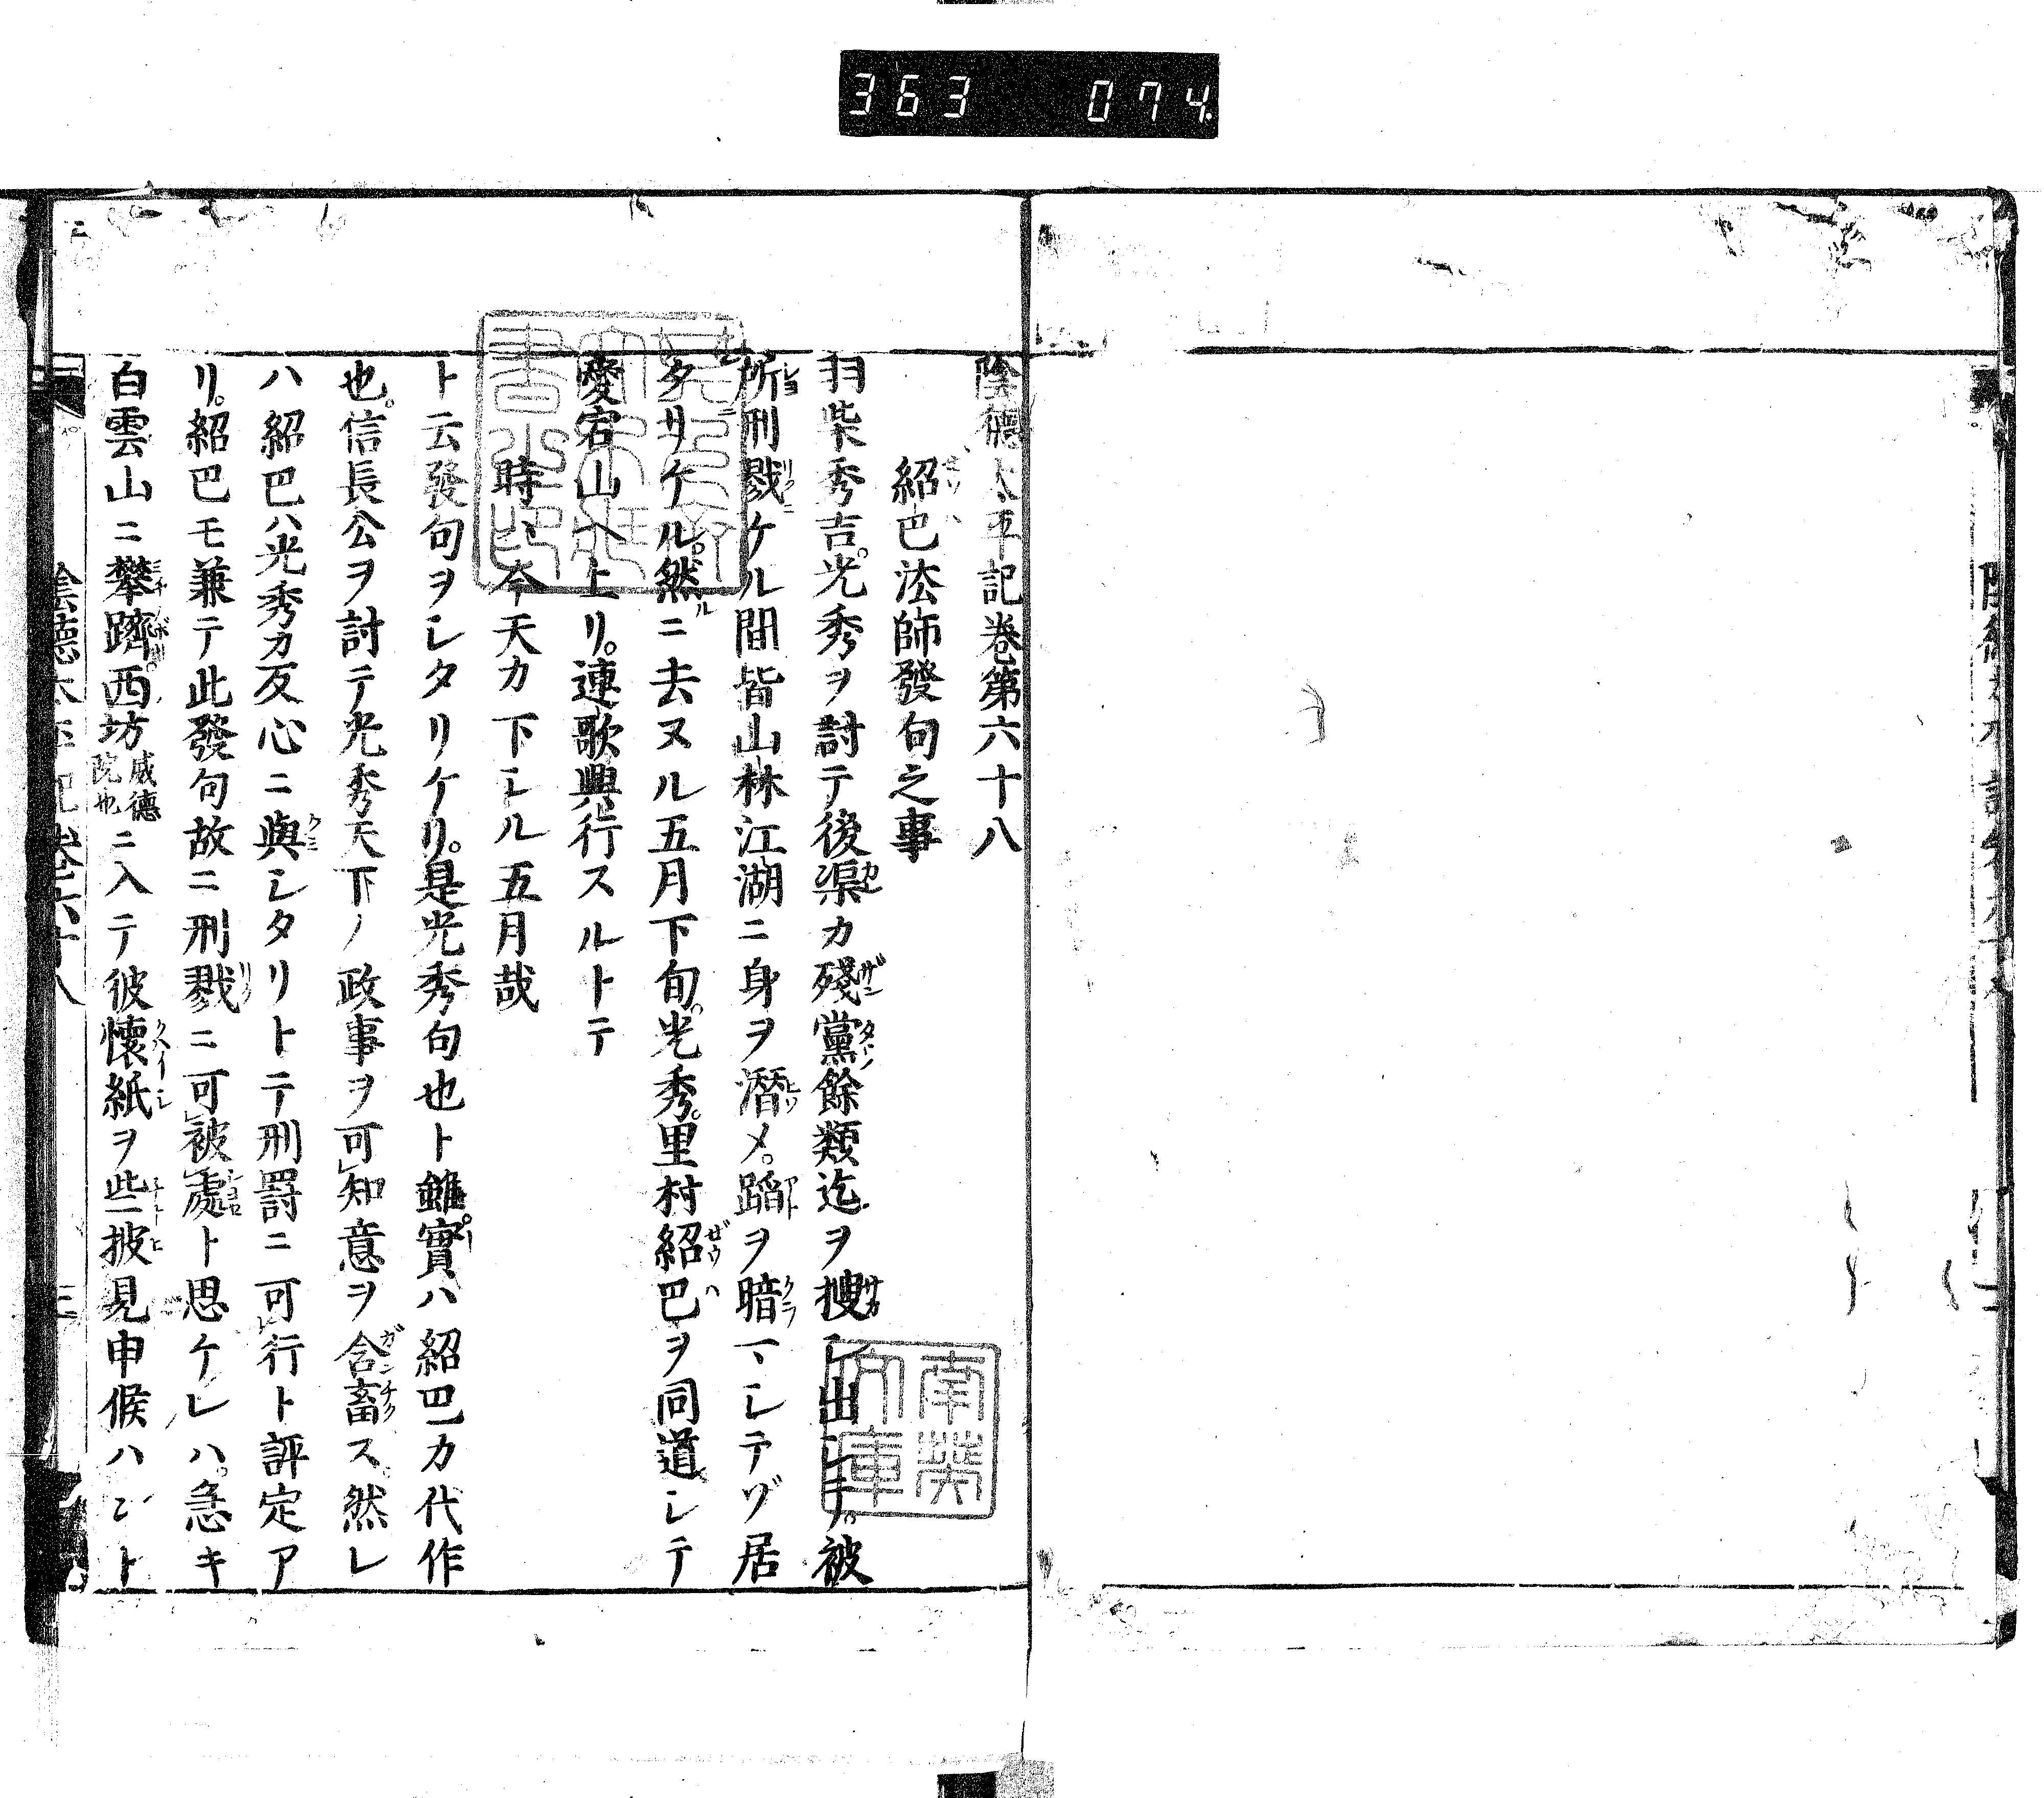 363 074
陰德太平記卷第六十八
紹巴法師發句之事
羽柴秀吉。光秀ヲ討テ後渠カ殘黨餘類迄ヲ搜シ出シテ。被
所刑戮ケル間皆山林江湖ニ身ヲ潛メ。蹈ヲ暗マシテゾ居
タリケル。然ルニ去ヌル五月下旬。光秀。里村紹巴ヲ同道シテ
愛宕山ヘ上リ。連歌興行スルトテ
時ハ今天カ下シル五月哉
ト云發句ヲシタリケリ。是光秀句也ト雖。實ハ紹巴カ代作
也。信長公ヲ討テ光秀天下ノ政事ヲ可知意ヲ含畜ス。然レ
ハ紹巴ハ光秀カ反心ニ與シタリトテ刑罸ニ可行ト評定ア
リ。紹巴モ兼テ此發句故ニ刑戮ニ可被處ト思ケレハ。急キ
白雲山ニ攀躋。西坊威德院也ニ入テ彼懷紙ヲ些披見申候ハント
陰德太平記卷六十八
南葵文庫